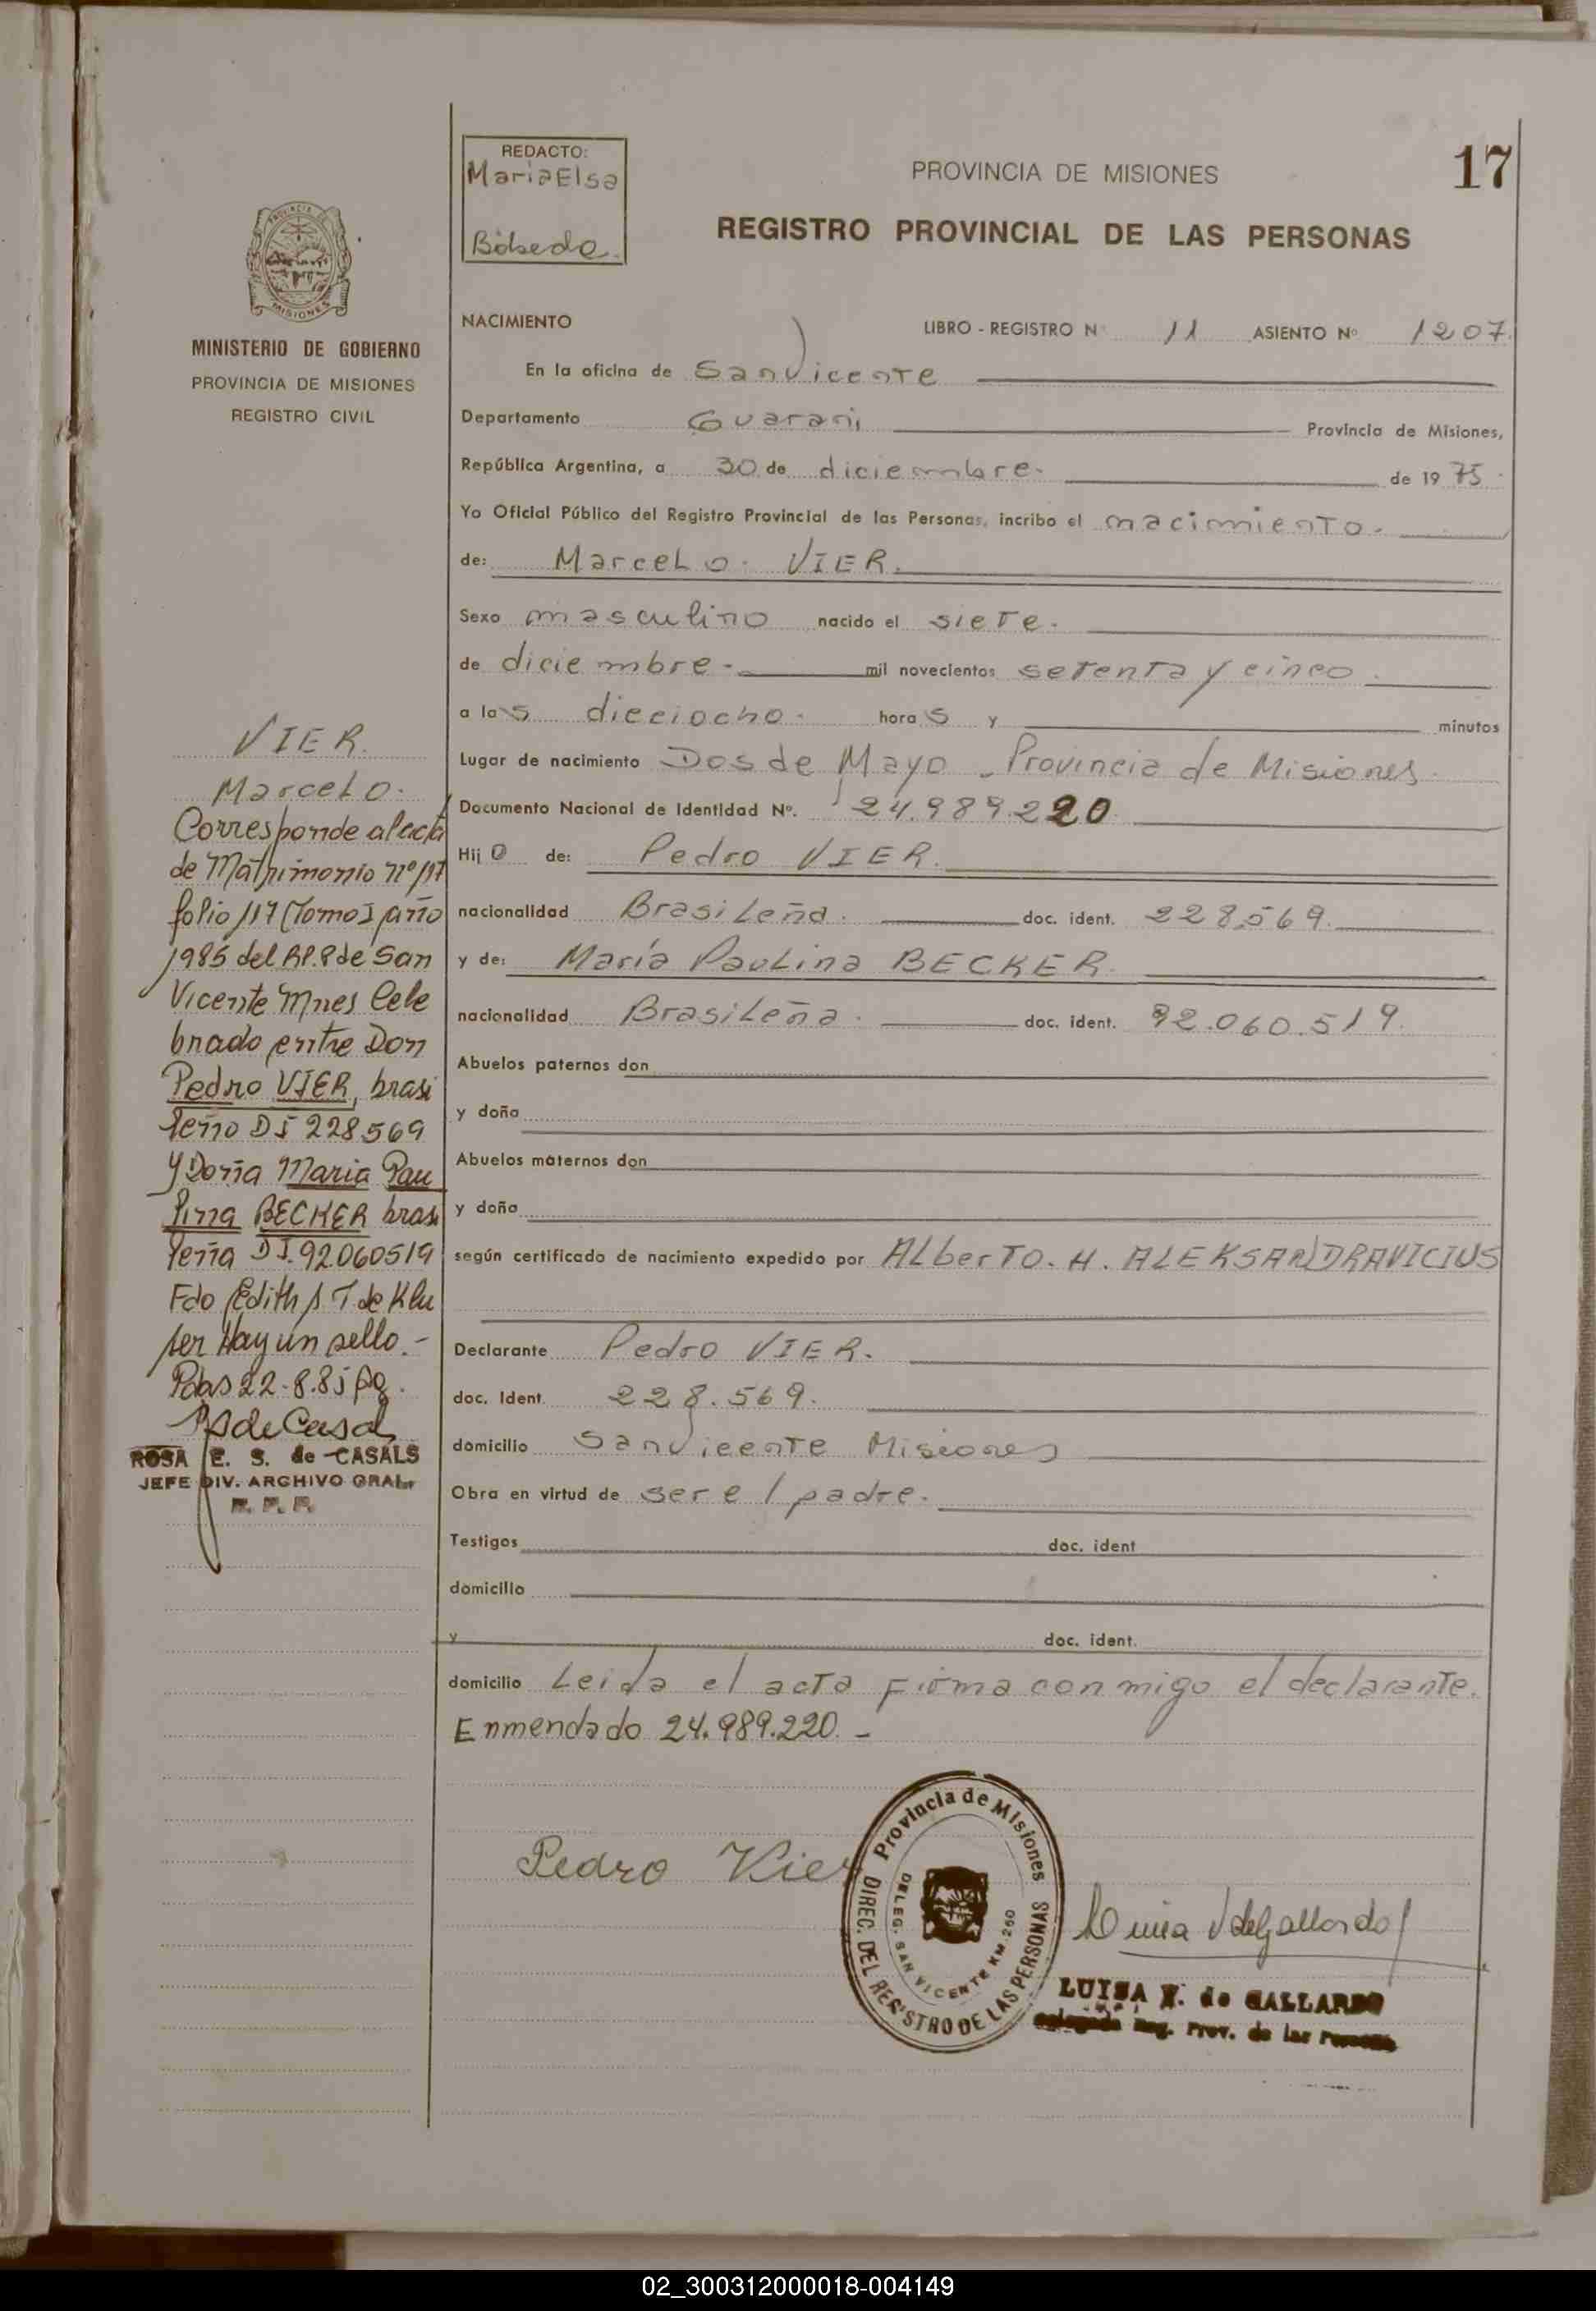 17
REDACTO:
Maria Elsa
Bóbeda
PROVINCIA DE MISIONES
REGISTRO PROVINCIAL DE LAS PERSONAS
PROVINCIA DE
MISIONES
MINISTERIO DE GOBIERNO
PROVINCIA DE MISIONES
REGISTRO CIVIL
VIER.
Marcelo.
Corresponde al acta
de Matrimonio nº 117
folio 117 (Tomo I año
1985 del RP.P de San
Vicente Mnes Cele
brado entre Don
Pedro VIER, brasi
leño DI 228569
y Doña Maria Pau
lina BECKER brasi
leña DI. 92060519
Fdo Edith T de Klu
ser Hay un sello.-
Pdas 22-8-85
RSdeCasals
ROSA E. S. de CASALS
JEFE DIV. ARCHIVO GRAL.
R. P. P.
NACIMIENTO LIBRO - REGISTRO Nº 11 ASIENTO Nº 1207.
En la oficina de San Vicente
Departamento Guarani Provincia de Misiones,
República Argentina, a 30 de diciembre. de 19 75.
Yo Oficial Público del Registro Provincial de las Personas, incribo el nacimiento.
de: Marcelo. VIER.
Sexo masculino nacido el siete.
de diciembre.- mil novecientos setenta y cinco.
a las dieciocho. horas y minutos
Lugar de nacimiento Dos de Mayo - Provincia de Misiones.
Documento Nacional de Identidad Nº. 24.989.220.
Hijo de: Pedro VIER.
nacionalidad Brasileña. doc. ident. 228.569.
y de: María Paulina BECKER.
nacionalidad Brasileña. doc. ident. 92.060.519.
Abuelos paternos don
y doña
Abuelos maternos don
y doña
según certificado de nacimiento expedido por Alberto. H. ALEKSANDRAVICIUS
Declarante Pedro VIER.
doc. Ident. 228.569.
domicilio San Vicente Misiones
Obra en virtud de ser el padre.
Testigos doc. ident
domicilio
y doc. ident.
domicilio Leida el acta firma conmigo el declarante.
Enmendado 24.989.220.-
Pedro Vier
Provincia de Misiones
DIREC. DEL REGISTRO DE LAS PERSONAS
DELEG. SAN VICENTE KM. 260
Luisa V de Gallardo
LUISA V. de GALLARDO
Delegada Reg. Prov. de las Personas
02_300312000018-004149